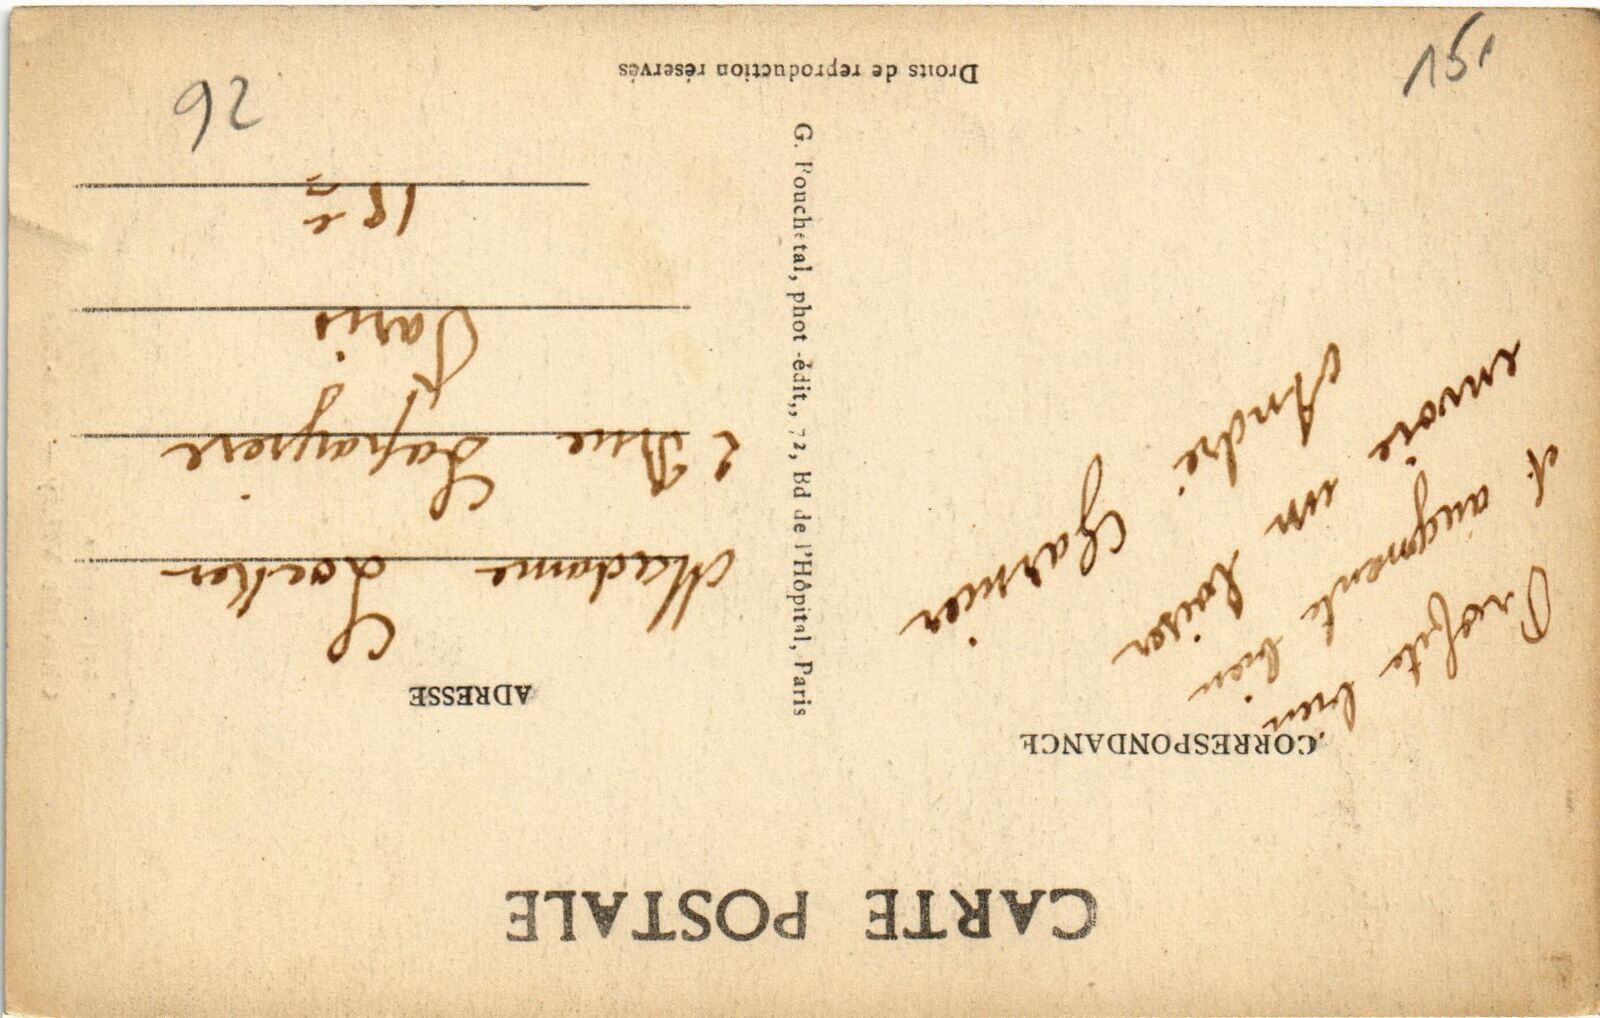 CARTE POSTALE
CORRESPONDANCE
Profite bien
et augmente bien
envoie un baiser
André Garnier
ADRESSE
Madame
2 Rue
Paris
18e
G. Pouchetal, phot-édit,, 72, Bd de l'Hôpital, Paris
Droits de reproduction réservés
92
15